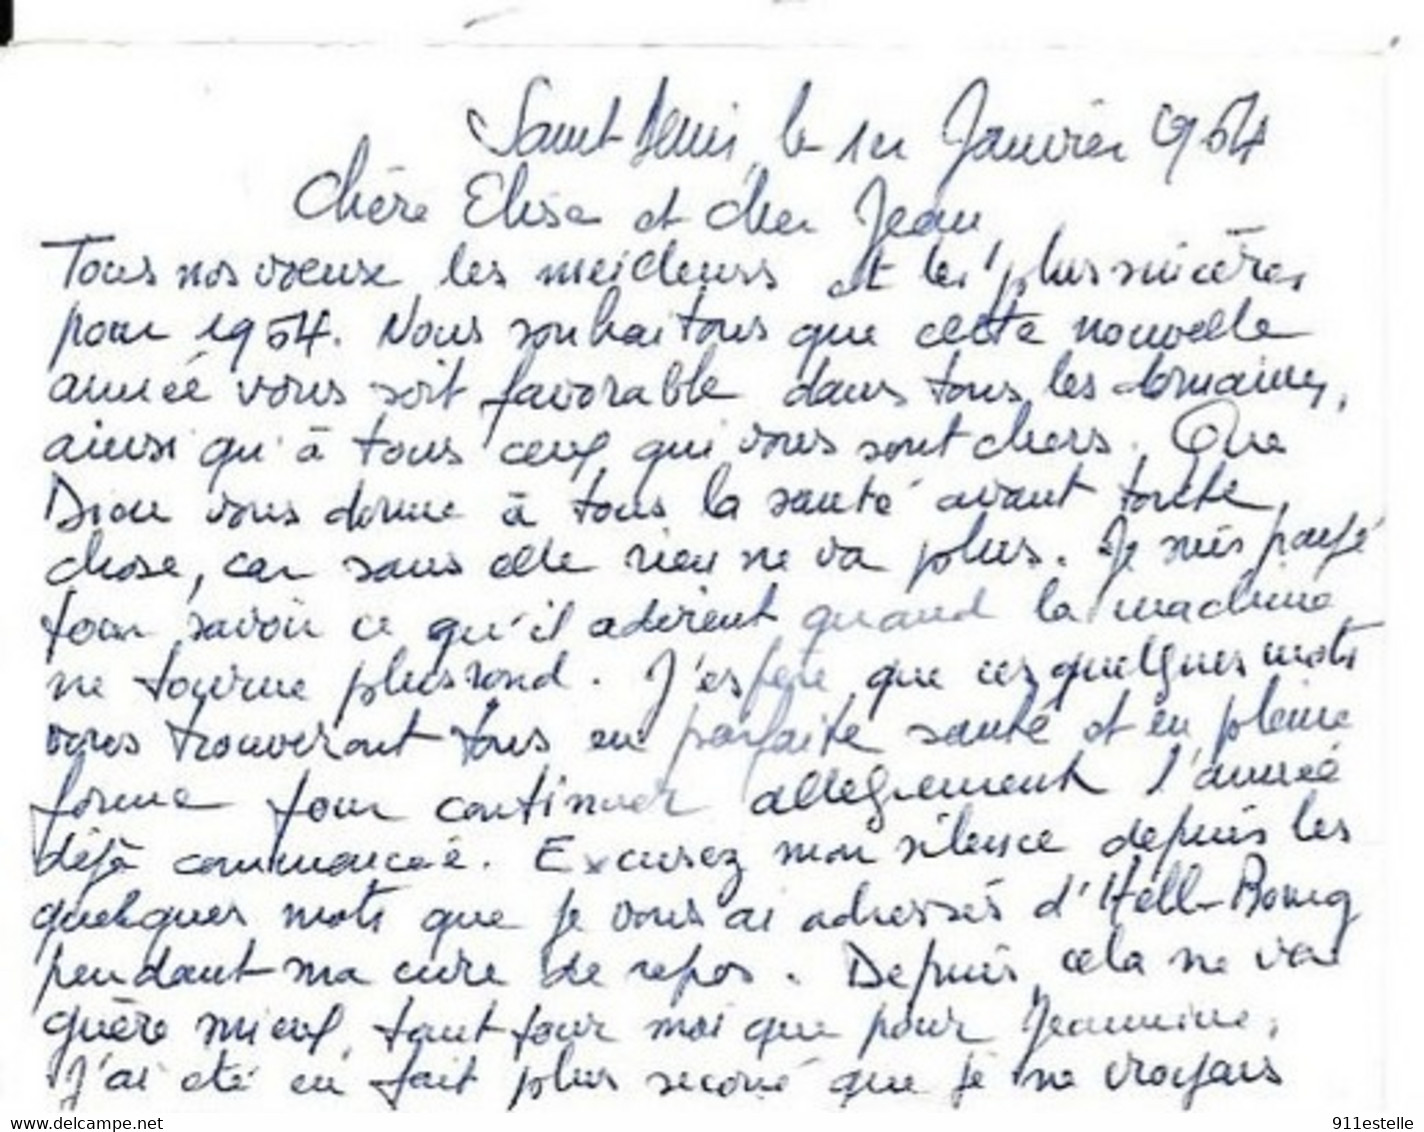 Saint-Denis, le 1er Janvier 1954
Chère Elise et cher Jean,
Tous nos voeux les meilleurs et les plus sincères
pour 1954. Nous souhaitons que cette nouvelle
année vous soit favorable dans tous les domaines,
ainsi qu'à tous ceux qui vous sont chers. Que
Dieu vous donne à tous la santé avant toute
chose, car sans elle rien ne va plus. Je suis payé
pour savoir ce qu'il advient quand la machine
ne tourne plus rond. J'espère que ces quelques mots
vous trouveront tous en parfaite santé et en pleine
forme pour continuer allègrement l'année
déjà commencée. Excusez mon silence depuis les
quelques mots que je vous ai adressés d'Hell-Bourg
pendant ma cure de repos. Depuis, cela ne va
guère mieux, tant pour moi que pour Jeannine.
J'ai été en fait plus secoué que je ne croyais
delcampe.net
911estelle